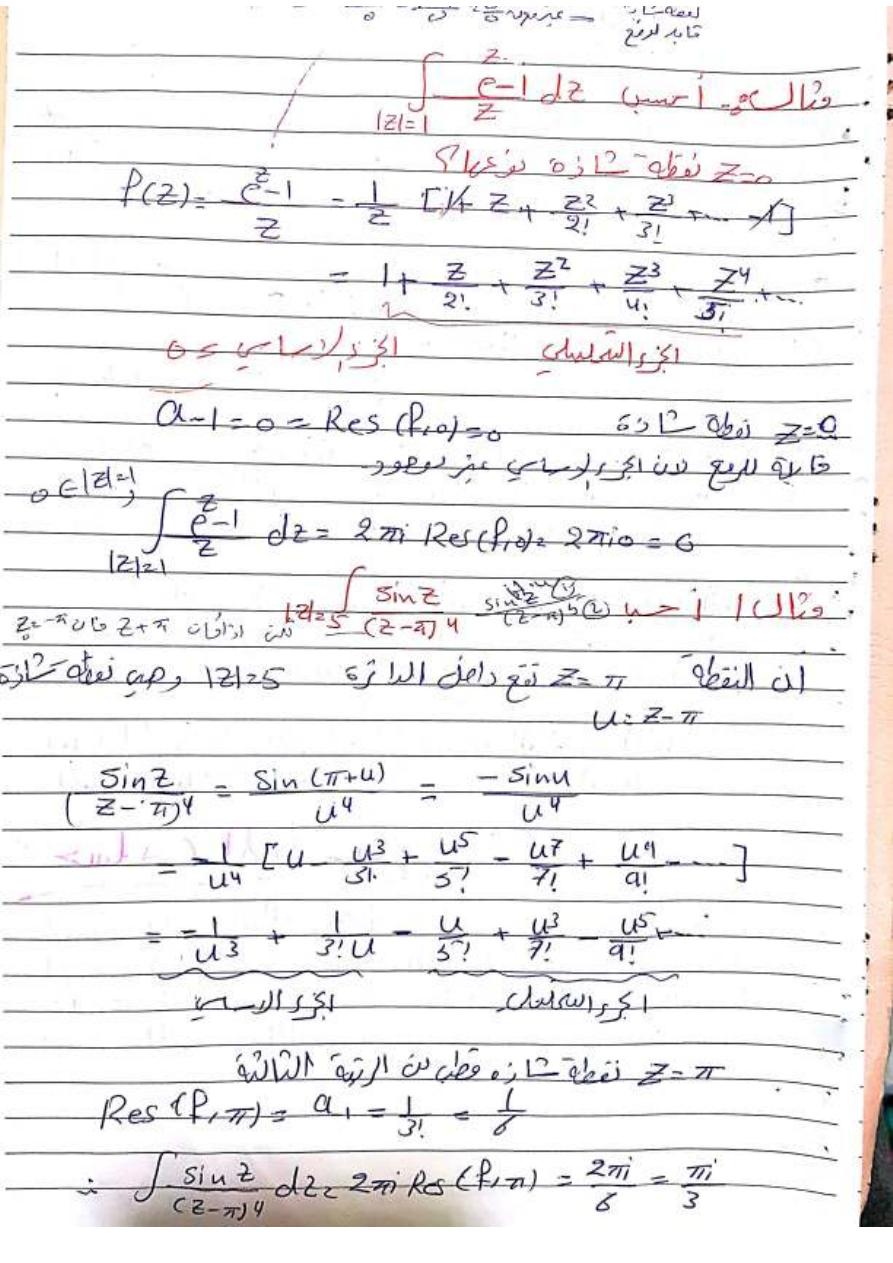 قابلة للرفع
مثال: أحسب ∫_{|z|=1} (e^z-1)/z dz
z=0 نقطة شاذة نوعها؟
f(z) = (e^z-1)/z = 1/z [1 + z + z²/2! + z³/3! + ... - 1]
= 1 + z/2! + z²/3! + z³/4! + z⁴/5! + ...
الجزء التحليلي الجزء الاساسي = 0
z=0 نقطة شاذة a-1 = 0 = Res(f,0) = 0
قابلة للرفع لان الجزء الاساسي غير موجود
0 ∈ |z|=1
∫_{|z|=1} (e^z-1)/z dz = 2πi Res(f,0) = 2πi0 = 0
مثال / أحسب ∫_{|z|=5} sin z/(z-π)⁴
z+π فان z=-π
ان النقطة z=π تقع داخل الدائرة |z|=5 وهي نقطة شاذة
u = z-π
sin z/(z-π)⁴ = sin(π+u)/u⁴ = -sin u/u⁴
= -1/u⁴ [u - u³/3! + u⁵/5! - u⁷/7! + u⁹/9! - ....]
= -1/u³ + 1/3!u - u/5! + u³/7! - u⁵/9! + ...
الجزء التحليلي الجزء الاساسي
z=π نقطة شاذه قطب من الرتبة الثالثة
Res(f,π) = a_1 = 1/3! = 1/6
∴ ∫ sin z/(z-π)⁴ dz = 2πi Res(f,π) = 2πi/6 = πi/3